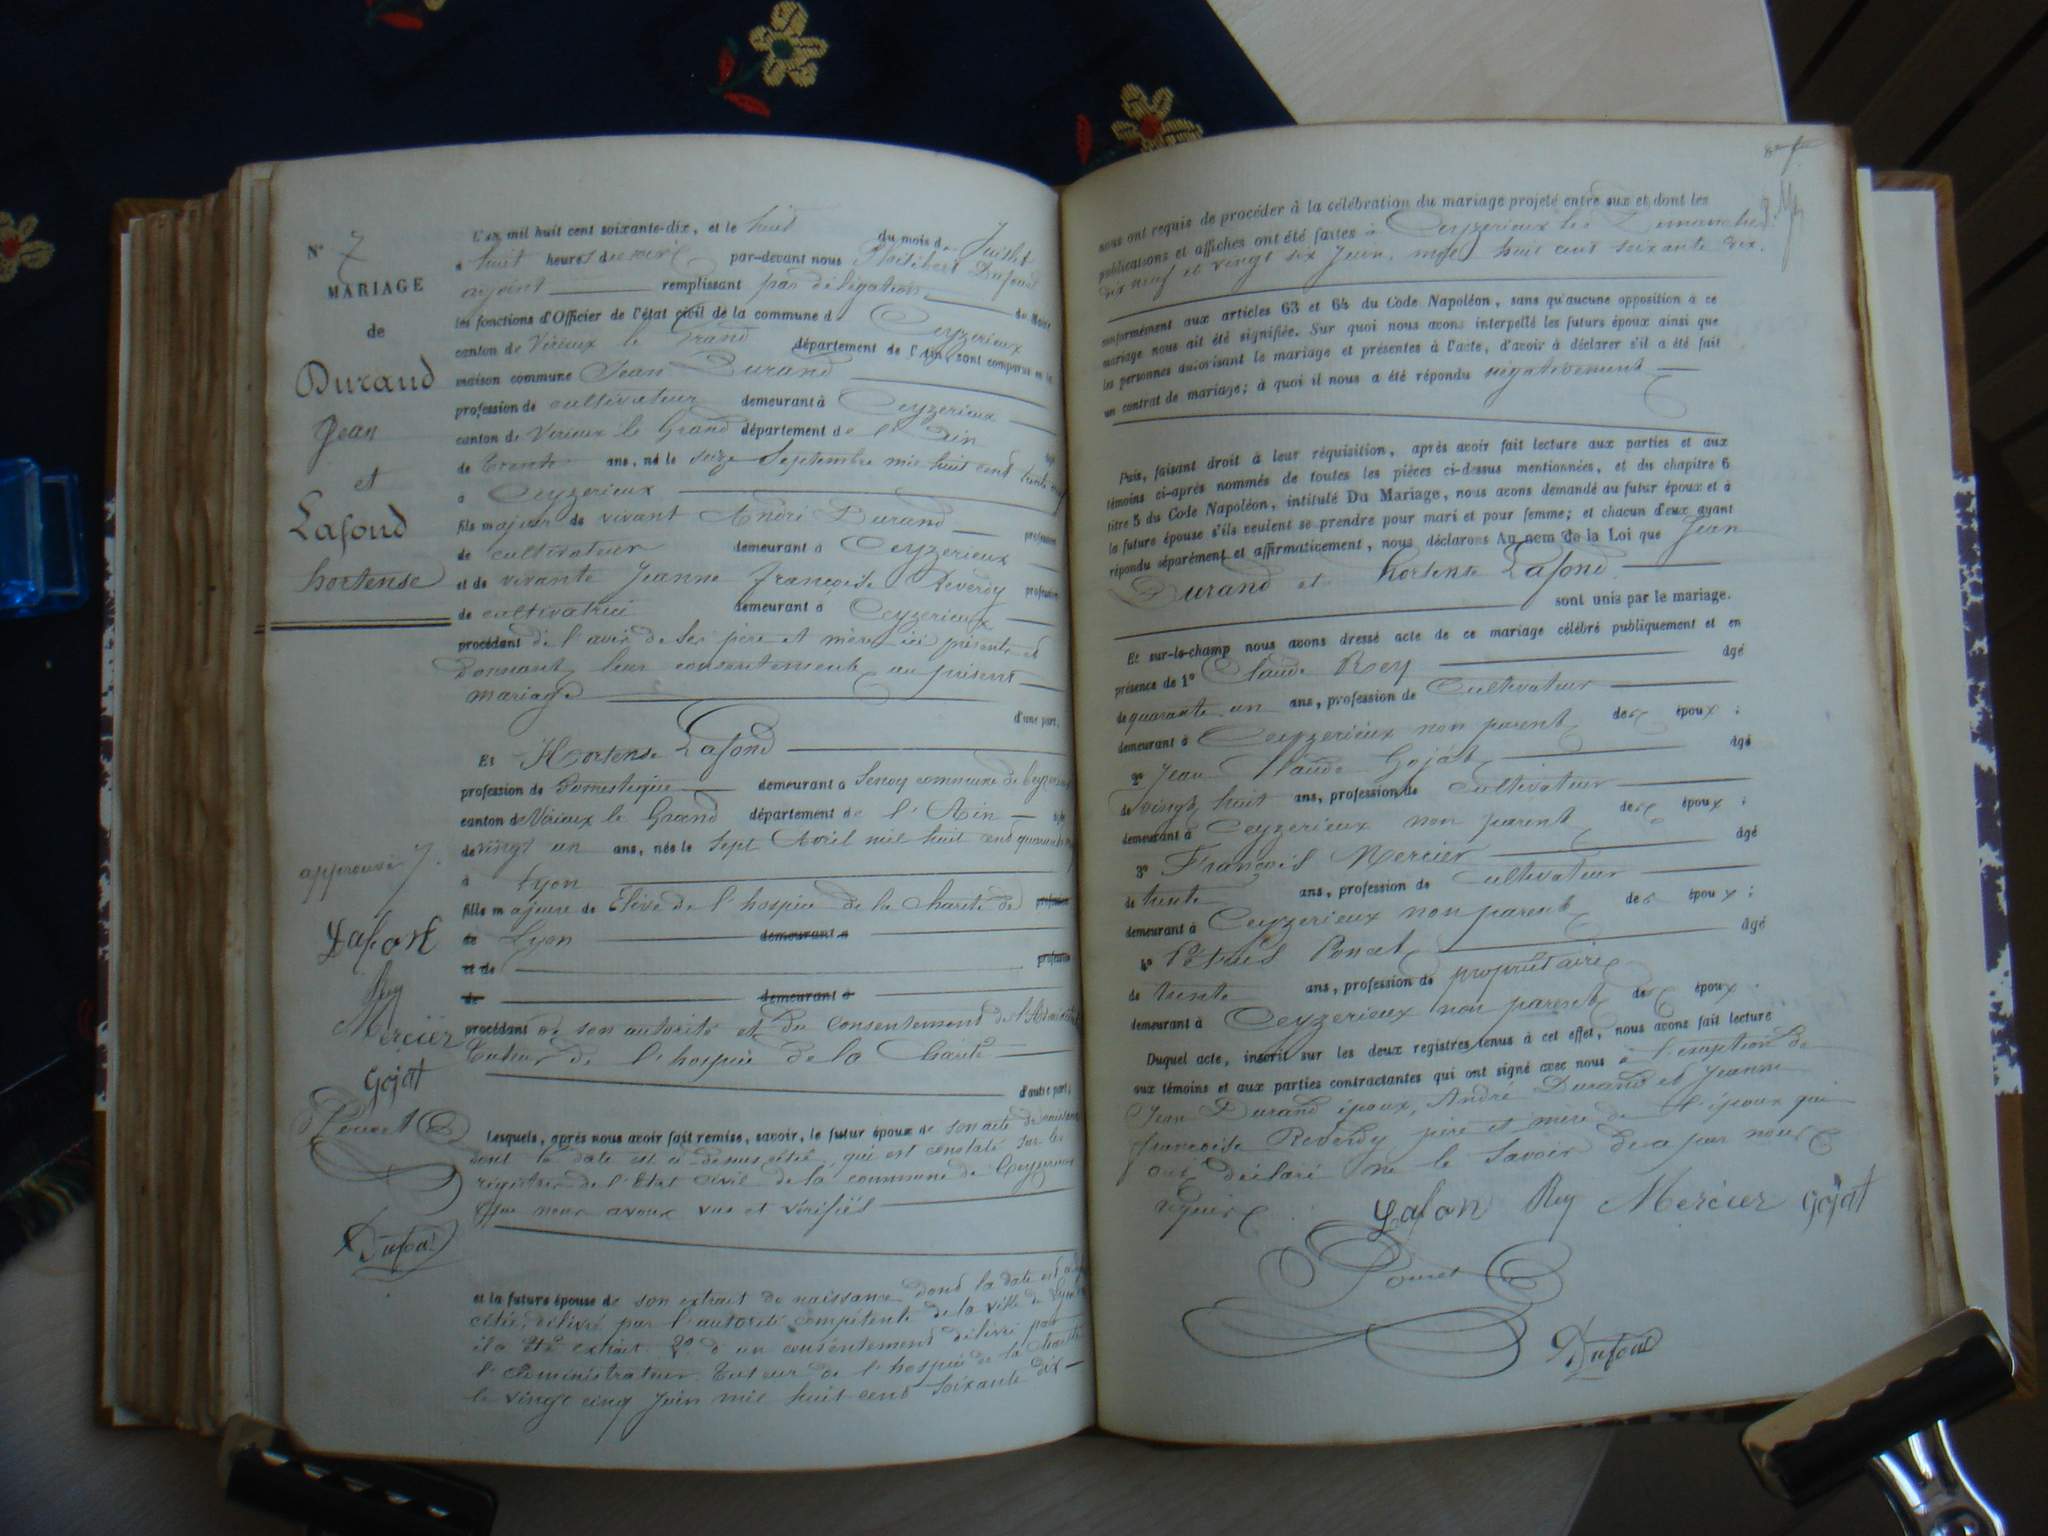 N° 7
MARIAGE
de
Durand
Jean
et
Lafond
hortense
approuvé 7.
Lafont
Rey
Mercier
Gojat
Poncet
Dufour
L'AN mil huit cent soixante-dix, et le huit du mois de Juillet
à huit heures du soir par-devant nous Philibert Dufour
adjoint remplissant par délégation du Maire
les fonctions d'Officier de l'état civil de la commune de Ceyzerieux
canton de Virieux le Grand département de l'Ain, sont comparus en la
maison commune Jean Durand
profession de cultivateur demeurant à Ceyzerieux
canton de Virieux le Grand département de l'Ain
de trente ans, né le seize Septembre mil huit cent trente neuf
à Ceyzerieux
fils majeur de vivant André Durand profession
de cultivateur demeurant à Ceyzerieux
et de vivante Jeanne françoise Reverdy profession
de cultivatrice demeurant à Ceyzerieux
procédant de l'avis de ses père et mère ici présents et
donnant leur consentement au présent
mariage
d'une part.
Et Hortense Lafond
profession de Domestique demeurant à commune de Ceyzerieux
canton de Virieux le Grand département de l'Ain
de vingt un ans, née le sept Avril mil huit cent quarante
à Lyon
fille majeure de Elève de l'hospice de la Charité de profession
de Lyon demeurant à
et de profession
de demeurant à
procédant de son autorité et du consentement de l'Administrateur
Tuteur de l'hospice de la Charité
d'autre part;
Lesquels, après nous avoir fait remise, savoir, le futur époux de son acte de naissance
dont la date est ci dessus citée, qui est constaté sur les
registres de l'Etat civil de la commune de Ceyzerieux
que nous avons vus et vérifiés
et la future épouse de son extrait de naissance dont la date est
citée, délivré par l'autorité compétente de la ville de Lyon
il a été extrait. 2° d'un consentement délivré par
l'Administrateur Tuteur de l'hospice de la Charité
le vingt cinq Juin mil huit cent soixante dix
nous ont requis de procéder à la célébration du mariage projeté entre eux et dont les
publications et affiches ont été faites à Ceyzerieux les Dimanches
dix neuf et vingt six Juin, mil huit cent soixante dix.
conformément aux articles 63 et 64 du Code Napoléon, sans qu'aucune opposition à ce
mariage nous ait été signifiée. Sur quoi nous avons interpellé les futurs époux ainsi que
les personnes autorisant le mariage et présentes à l'acte, d'avoir à déclarer s'il a été fait
un contrat de mariage; à quoi il nous a été répondu négativement
Puis, faisant droit à leur réquisition, après avoir fait lecture aux parties et aux
témoins ci-après nommés de toutes les pièces ci-dessus mentionnées, et du chapitre 6
titre 5 du Code Napoléon, intitulé Du Mariage, nous avons demandé au futur époux et à
la future épouse s'ils veulent se prendre pour mari et pour femme; et chacun d'eux ayant
répondu séparément et affirmativement, nous déclarons Au nom de la Loi que Jean
Durand et hortense Lafond
sont unis par le mariage.
Et sur-le-champ nous avons dressé acte de ce mariage célébré publiquement et en
présence de 1° Claude Rey âgé
de quarante un ans, profession de Cultivateur
demeurant à Ceyzerieux non parent des époux;
2° Jean Claude Gojat âgé
de vingt huit ans, profession de cultivateur
demeurant à Ceyzerieux non parent des époux;
3° François Mercier âgé
de trente ans, profession de Cultivateur
demeurant à Ceyzerieux non parent des époux;
4° Pétrus Poncet âgé
de trente ans, profession de propriétaire
demeurant à Ceyzerieux non parent des époux.
Duquel acte, inscrit sur les deux registres tenus à cet effet, nous avons fait lecture
aux témoins et aux parties contractantes qui ont signé avec nous à l'exeption de
Jean Durand époux, André Durand et Jeanne
françoise Reverdy père et mère de l'époux qui
ont déclaré ne le savoir de ce par nous
requis
Lafon Rey Mercier Gojat
Poncet
Dufour